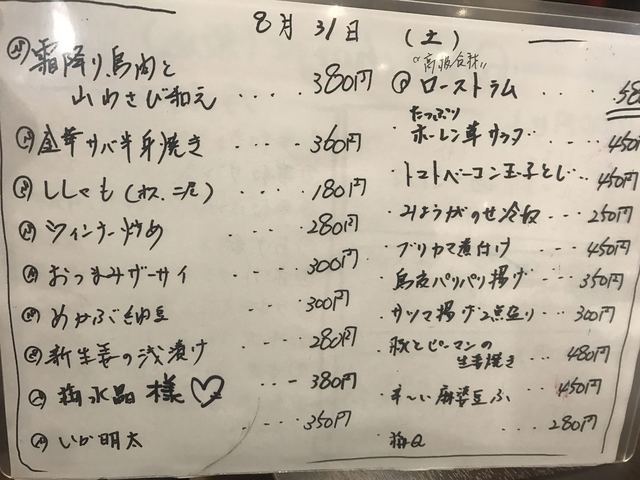 8月31日(土)
霜降り鳥肉と
山わさび和え ‥‥ 380円
金華サバ半身焼き ‥‥ 360円
ししゃも(オス、二尾) ‥‥ 180円
ウィンナー炒め ‥‥ 280円
おつまみザーサイ ‥‥ 300円
めかぶ納豆 ‥‥ 300円
新生姜の浅漬け ‥‥ 280円
梅水晶 様♡ ‥‥ 380円
いか明太 ‥‥ 350円
ローストラム ‥‥ 58
たっぷり
ホーレン草サラダ ‥‥ 450円
トマトベーコン玉子とじ ‥‥ 450円
みょうがのせ冷奴 ‥‥ 250円
ブリカマ煮付け ‥‥ 450円
鳥皮パリパリ揚げ ‥‥ 350円
サツマ揚げ2点盛り ‥‥ 300円
豚とピーマンの
生姜焼き ‥‥ 480円
辛〜い麻婆豆ふ ‥‥ 450円
梅Q ‥‥ 280円